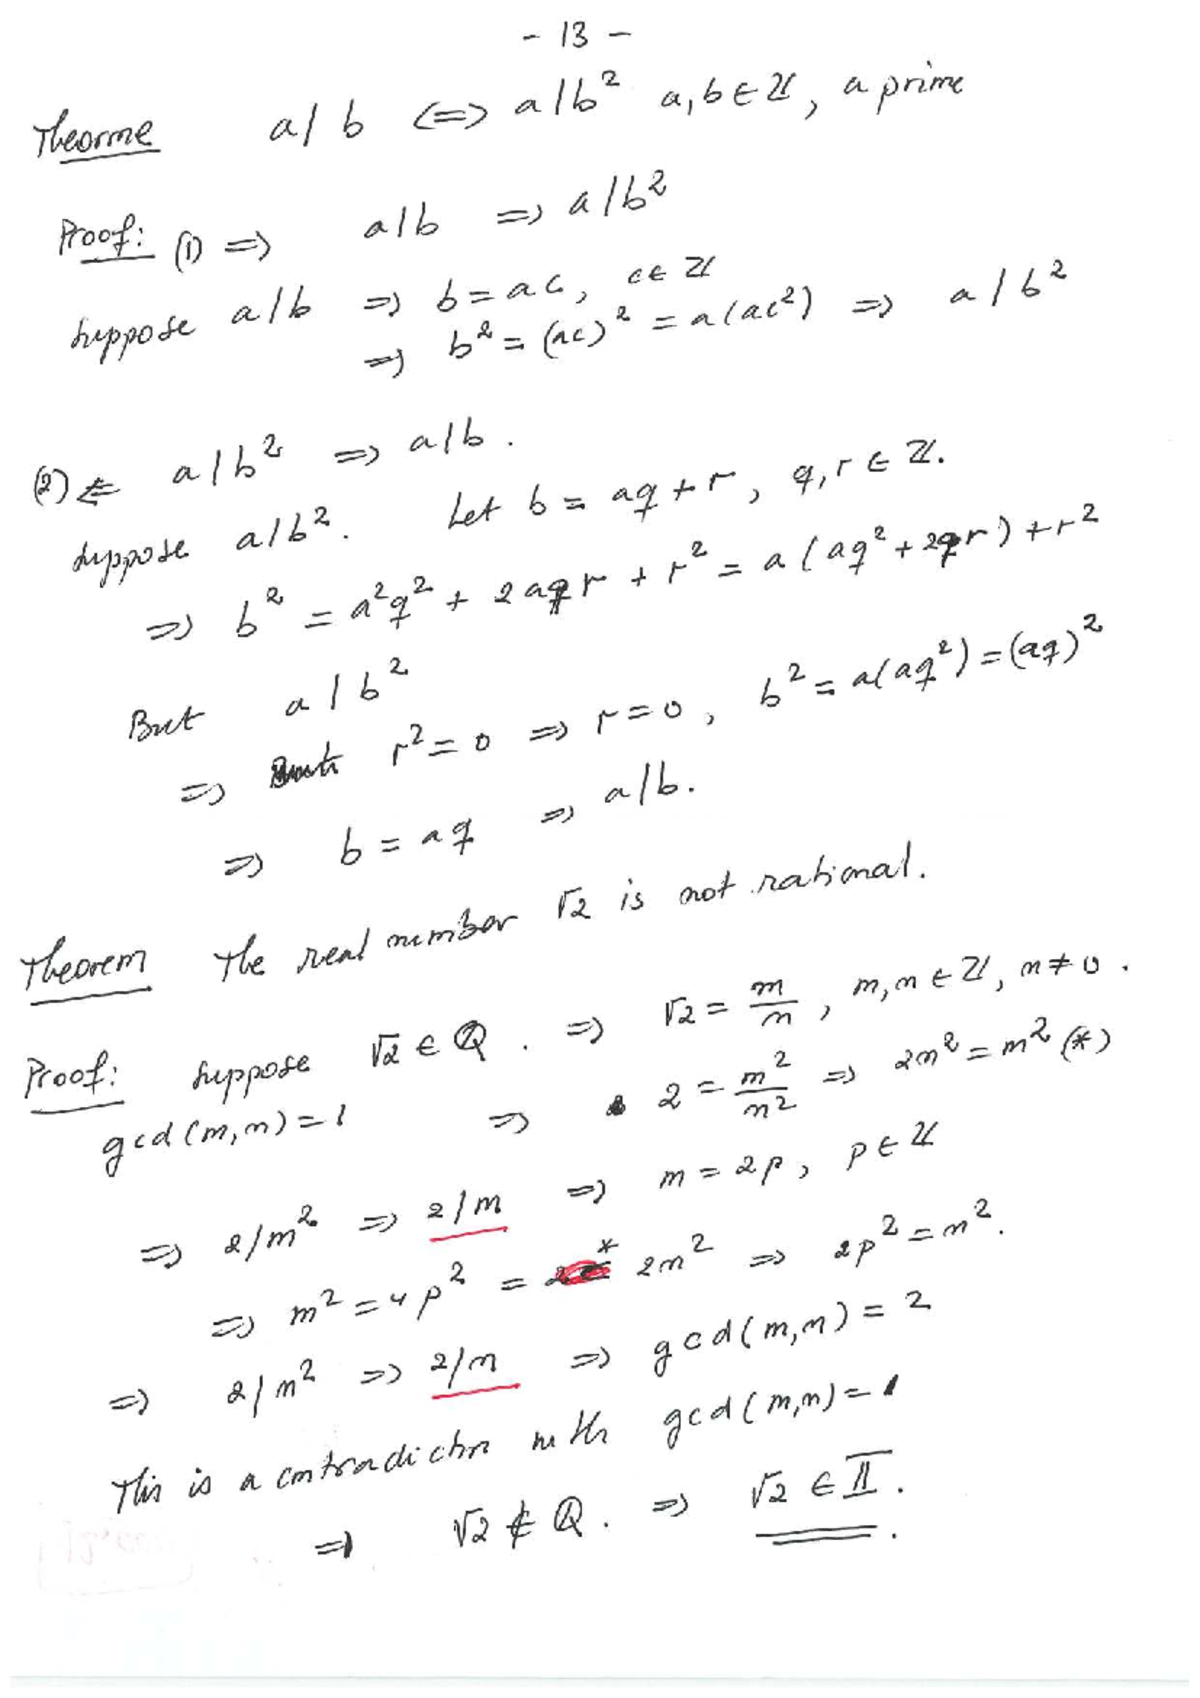 - 13 -
Theorme a/b <=> a/b² a,b ∈ ℤ, a prime
Proof: (1) => a/b => a/b²
suppose a/b => b = ac, c ∈ ℤ
=> b² = (ac)² = a(ac²) => a/b²
(2) <= a/b² => a/b.
suppose a/b². Let b = aq + r, q,r ∈ ℤ.
=> b² = a²q² + 2aqr + r² = a(aq² + 2qr) + r²
But a/b²
=> r² = 0 => r = 0, b² = a(aq²) = (aq)²
=> b = aq => a/b.
Theorem The real number √2 is not rational.
Proof: suppose √2 ∈ ℚ. => √2 = m/n, m,n ∈ ℤ, n ≠ 0.
gcd(m,n) = 1 => 2 = m²/n² => 2n² = m² (*)
=> 2/m² => 2/m => m = 2p, p ∈ ℤ
=> m² = 4p² = * 2n² => 2p² = n².
=> 2/n² => 2/n => gcd(m,n) = 2
This is a contradictin with gcd(m,n) = 1
=> √2 ∉ ℚ. => √2 ∈ 𝕀.